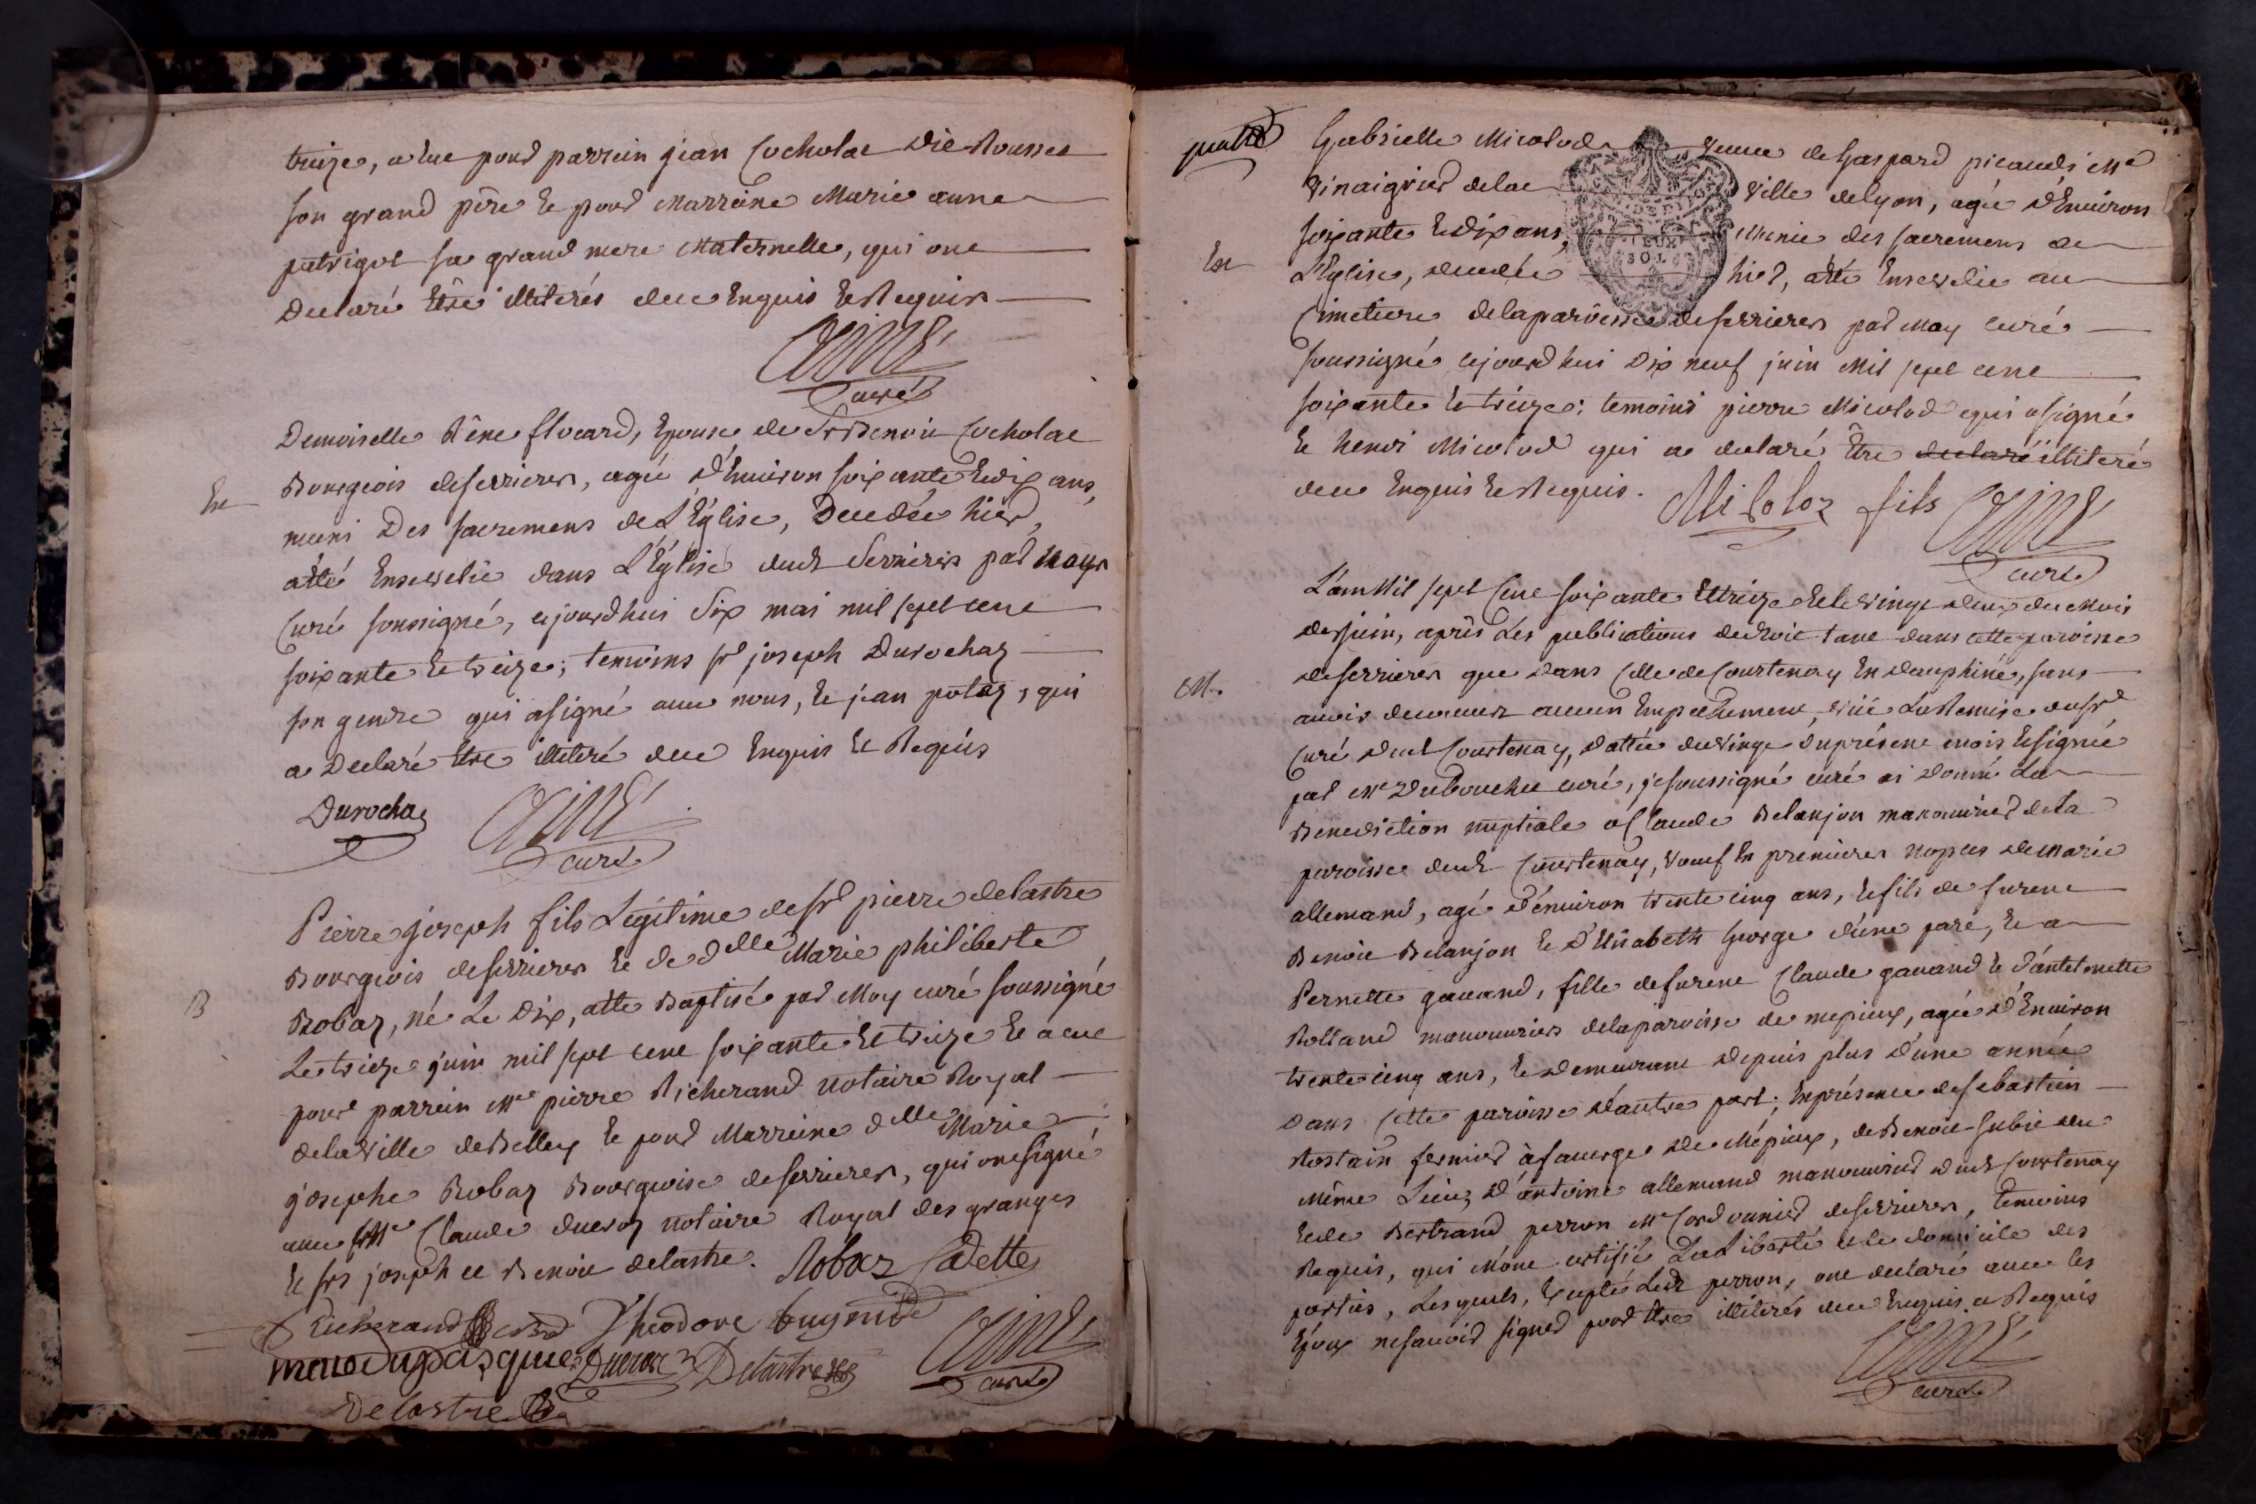 treize, a eue pour parrein jean Cocholat dit Rousset
son grand pére et pour marreine Marie anne
patrigot sa grand mere maternelle, qui ont
declaré être illiterés de ce enquis et Requis
AIMÉ
curé
Demoiselle Réne flocard, epouse de Sr Benoit Cocholat
En
Bourgeois de serrieres, agée d'Environ soixante et dix ans,
muni Des sacremens de L'Église, Decedée hier,
a été Ensevelie dans L'Église dudt Serrieres par moy
Curé soussigné, cejourdhui Six mai mil sept cent
soixante et treize; temoins sr joseph Durochaz
son gendre qui a signé avec nous, et jean potaz, qui
a Declaré être illiteré de ce Enquis et Requis
Durochaz
AIMÉ
curé
Pierre joseph fils Legitime de sr pierre delastre
Bourgeois de serrieres et de dlle Marie philiberte
B
Robaz, né Le Dix, a été Baptisé par Moy curé soussigné
Le treize juin mil sept cent soixante Et treize Et a eue
pour parrein me pierre Richerand notaire Royal
de la ville de Belley et pour Marreine dlle Marie
josephe Robaz Bourgeoise de serrieres, qui ont signé
avec Me Claude ducroz notaire Royal des granges
et srs joseph et Benoit delastre. Robaz Cadette
Richerand Theodore Eugenie
Ducroz Delastre
AIMÉ
curé
Delastre
quatre
Gabrielle Micolod veuve de Gaspard picaud Me
vinaigrier de la ville de Lyon, agée d'Environ
soixante et dix ans, munie des sacremens de
En
L'Eglise, decedée hier, a été Ensevelie au
Cimetiere de la paroisse de serrieres par moy curé
soussigné cejourd'hui Dix neuf juin mil sept cent
soixante et treize: temoins pierre Micolod qui a signé
et henri Micolod qui a declaré Être declaré illiteré
de ce Enquis et Requis. Micoloz fils
AIMÉ
curé
L'an Mil sept Cent soixante Et treize et le vingt deux du mois
de juin, après Les publications de droit tant dans cette paroisse
M.
de serrieres que dans Celle de Courtenay En dauphiné, sans
avoir decouvert aucun Empechement, vüe La Remise du sr
Curé dudt Courtenay, dattée du vingt du présent mois et signée
par Me Dubouchet curé, je soussigné curé ai donné La
Benediction nuptiale a Claude Belanjon manouvrier de la
paroisse dudt Courtenay, veuf En premieres nopces de marie
allemand, agé d'environ trente cinq ans, et fils de furent
Benoit Belanjon et d'Elisabeth George d'une part, et a
Pernette gavand, fille de furent Claude gavand et d'antelmette
Rolland manouvriers de la paroisse de mepieux, agée d'Environ
trente cinq ans, et demeurant depuis plus d'une année
Dans Cette paroisse d'autre part; En présence de sebastien
Rostain fermier à faverge de Mépieux, de Benoit Subit du
même Lieu, d'antoine allemand manouvrier dudt Courtenay
et de Bertrand perron Me Cordonnier de serrieres, temoins
Requis, qui m'ont certifié La Liberté et le domicile des
parties, Lesquels, Excepté Ledt perron, ont declaré avec les
Epoux ne savoir signer pour être illiterés de ce Enquis et Requis
AIMÉ
curé